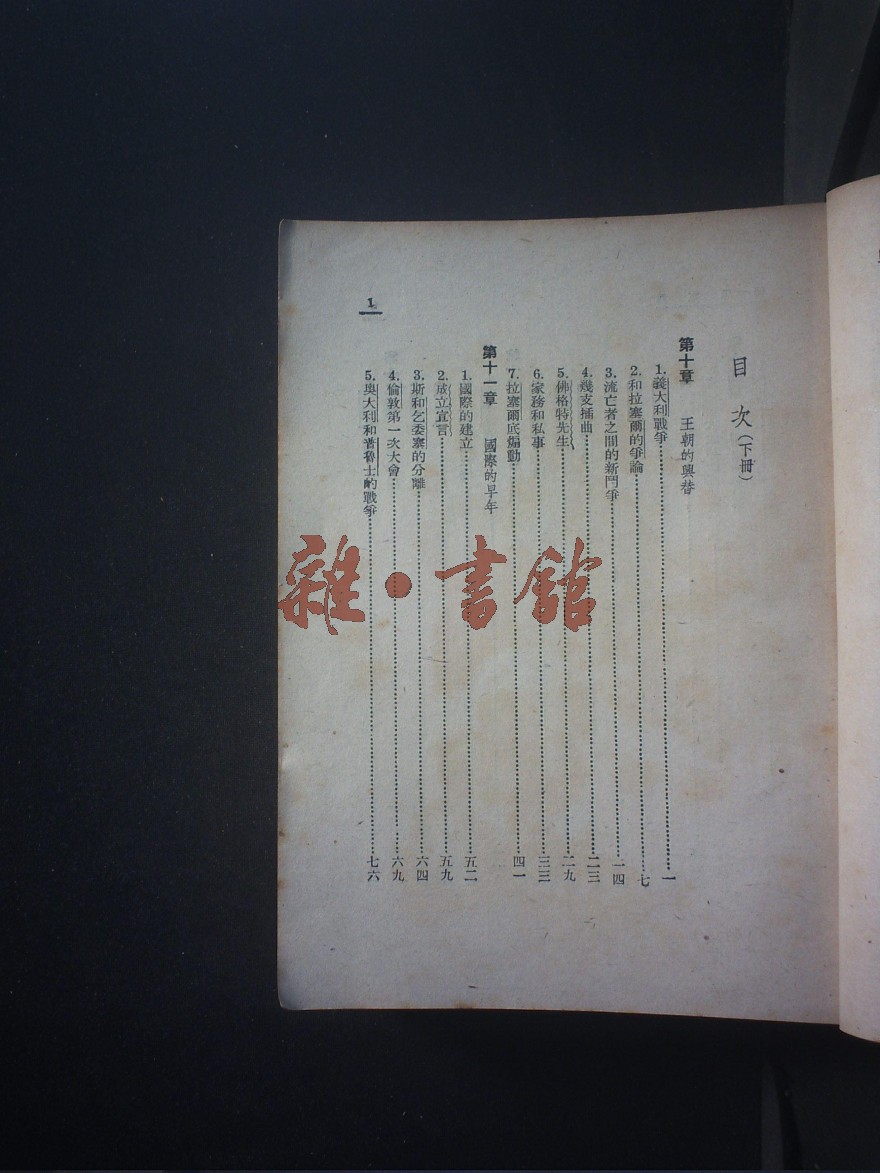 目次(下冊)
第十章 王朝的興替
1. 義大利戰爭……一
2. 和拉塞爾的爭論……七
3. 流亡者之間的新鬥爭……一四
4. 幾支插曲……二三
5. 佛格特先生……二九
6. 家務和私事……三三
7. 拉塞爾底煽動……四一
第十一章 國際的早年
1. 國際的建立……五二
2. 成立宣言……五九
3. 斯和乞委塞的分離……六四
4. 倫敦第一次大會……六九
5. 奥大利和普魯士的戰爭……七六
1
雜·書館